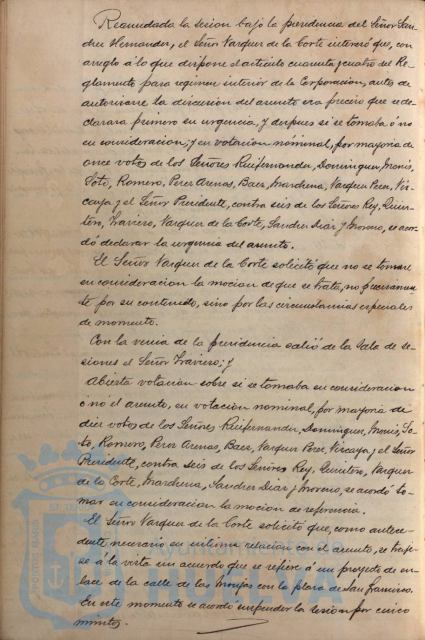 Reanudada la sesion bajo la presidencia del Señor San-
chez Hernandez, el Señor Vazquez de la Corte interesó que, con
arreglo á lo que dispone el artículo cuarenta y cuatro del Re-
glamento para regimen interior de la Corporacion, antes de
autorizarse la discusion del asunto era preciso que se de-
clarara primero su urgencia, y despues si se tomaba ó no
en consideracion; y en votacion nominal, por mayoria de
once votos de los Señores Ruifernandez, Dominguez, Monis,
Soto, Romero, Perez Arenas, Baez, Marchena, Vazquez Perez, Viz-
caya y el Señor Presidente, contra seis de los Señores Rey, Quin-
tero, Traviero, Vazquez de la Corte, Sanchez Diaz y Moreno, se acor-
dó declarar la urgencia del asunto.
El Señor Vazquez de la Corte solicitó que no se tomare
en consideracion la mocion de que se trata, no precisamen-
te por su contenido, sino por las circunstancias especiales
de momento.
Con la venia de la presidencia salió de la Sala de se-
siones el Señor Traviero; y
Abierta votacion sobre si se tomaba en consideracion
ó nó el asunto, en votacion nominal, por mayoria de
diez votos de los Señores Ruifernandez, Dominguez, Monis, So-
to, Romero, Perez Arenas, Baez, Vazquez Perez, Vizcaya y el Señor
Presidente, contra seis de los Señores Rey, Quintero, Vazquez
de la Corte, Marchena, Sanchez Diaz y Moreno, se acordó to-
mar en consideracion la mocion de referencia.
El Señor Vazquez de la Corte solicitó que, como antece-
dente necesario en intima relacion con el asunto, se traje-
se á la vista un acuerdo que se refiere á un proyecto de en-
lace de la calle de las Monjas con la plaza de San Francisco.
En este momento se acordó suspender la sesion por cinco
minutos.
Ayuntamiento de
HUELVA